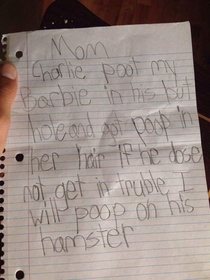 Mom
Charlie poot my
barbie in his but
hole and got poop in
her hair if he dose
not get in truble I
will poop on his
hamster